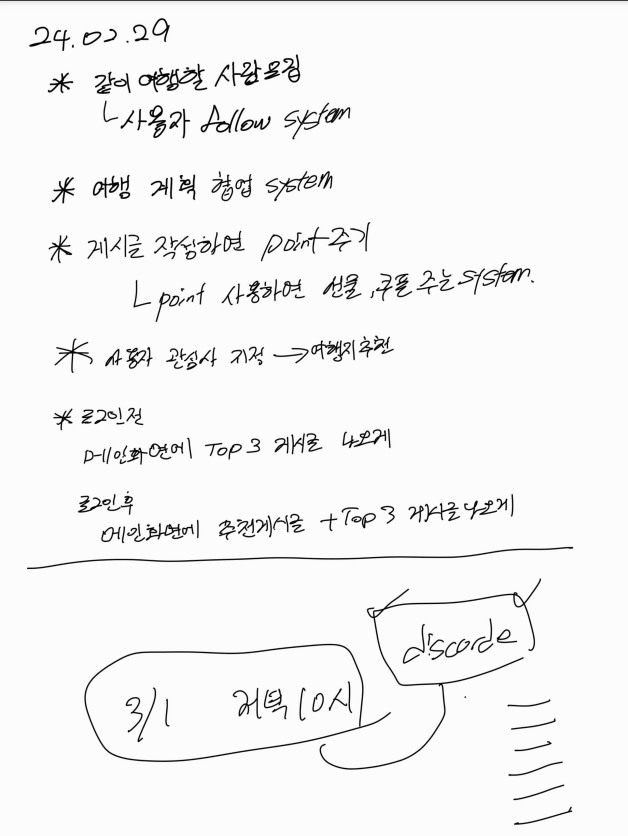 24.02.29
* 같이 여행할 사람 모집
└ 사용자 follow system
* 여행 계획 협업 system
* 게시글 작성하면 point 주기
└ point 사용하면 선물, 쿠폰 주는 system.
* 사용자 관심사 지정 → 여행지 추천
* 로그인 전
메인화면에 Top 3 게시글 나오게
로그인 후
메인화면에 추천게시글 + Top 3 게시글 나오게
discorde
3/1 저녁 10시